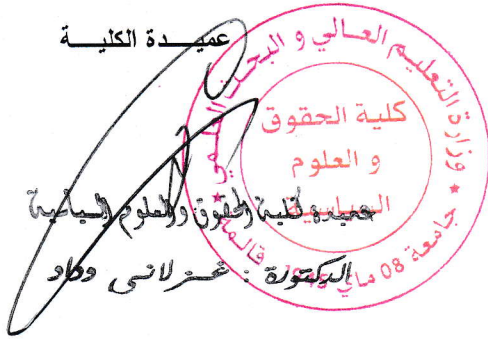 عميـــدة الكليـــة
وزارة التعليم العـالي و البحث العلمي
كلية الحقوق
و العلوم
السياسية
جامعة 08 ماي 1945 قالمة
عميدة كلية الحقوق والعلوم السياسية
الدكتورة : غـزلانـي وداد